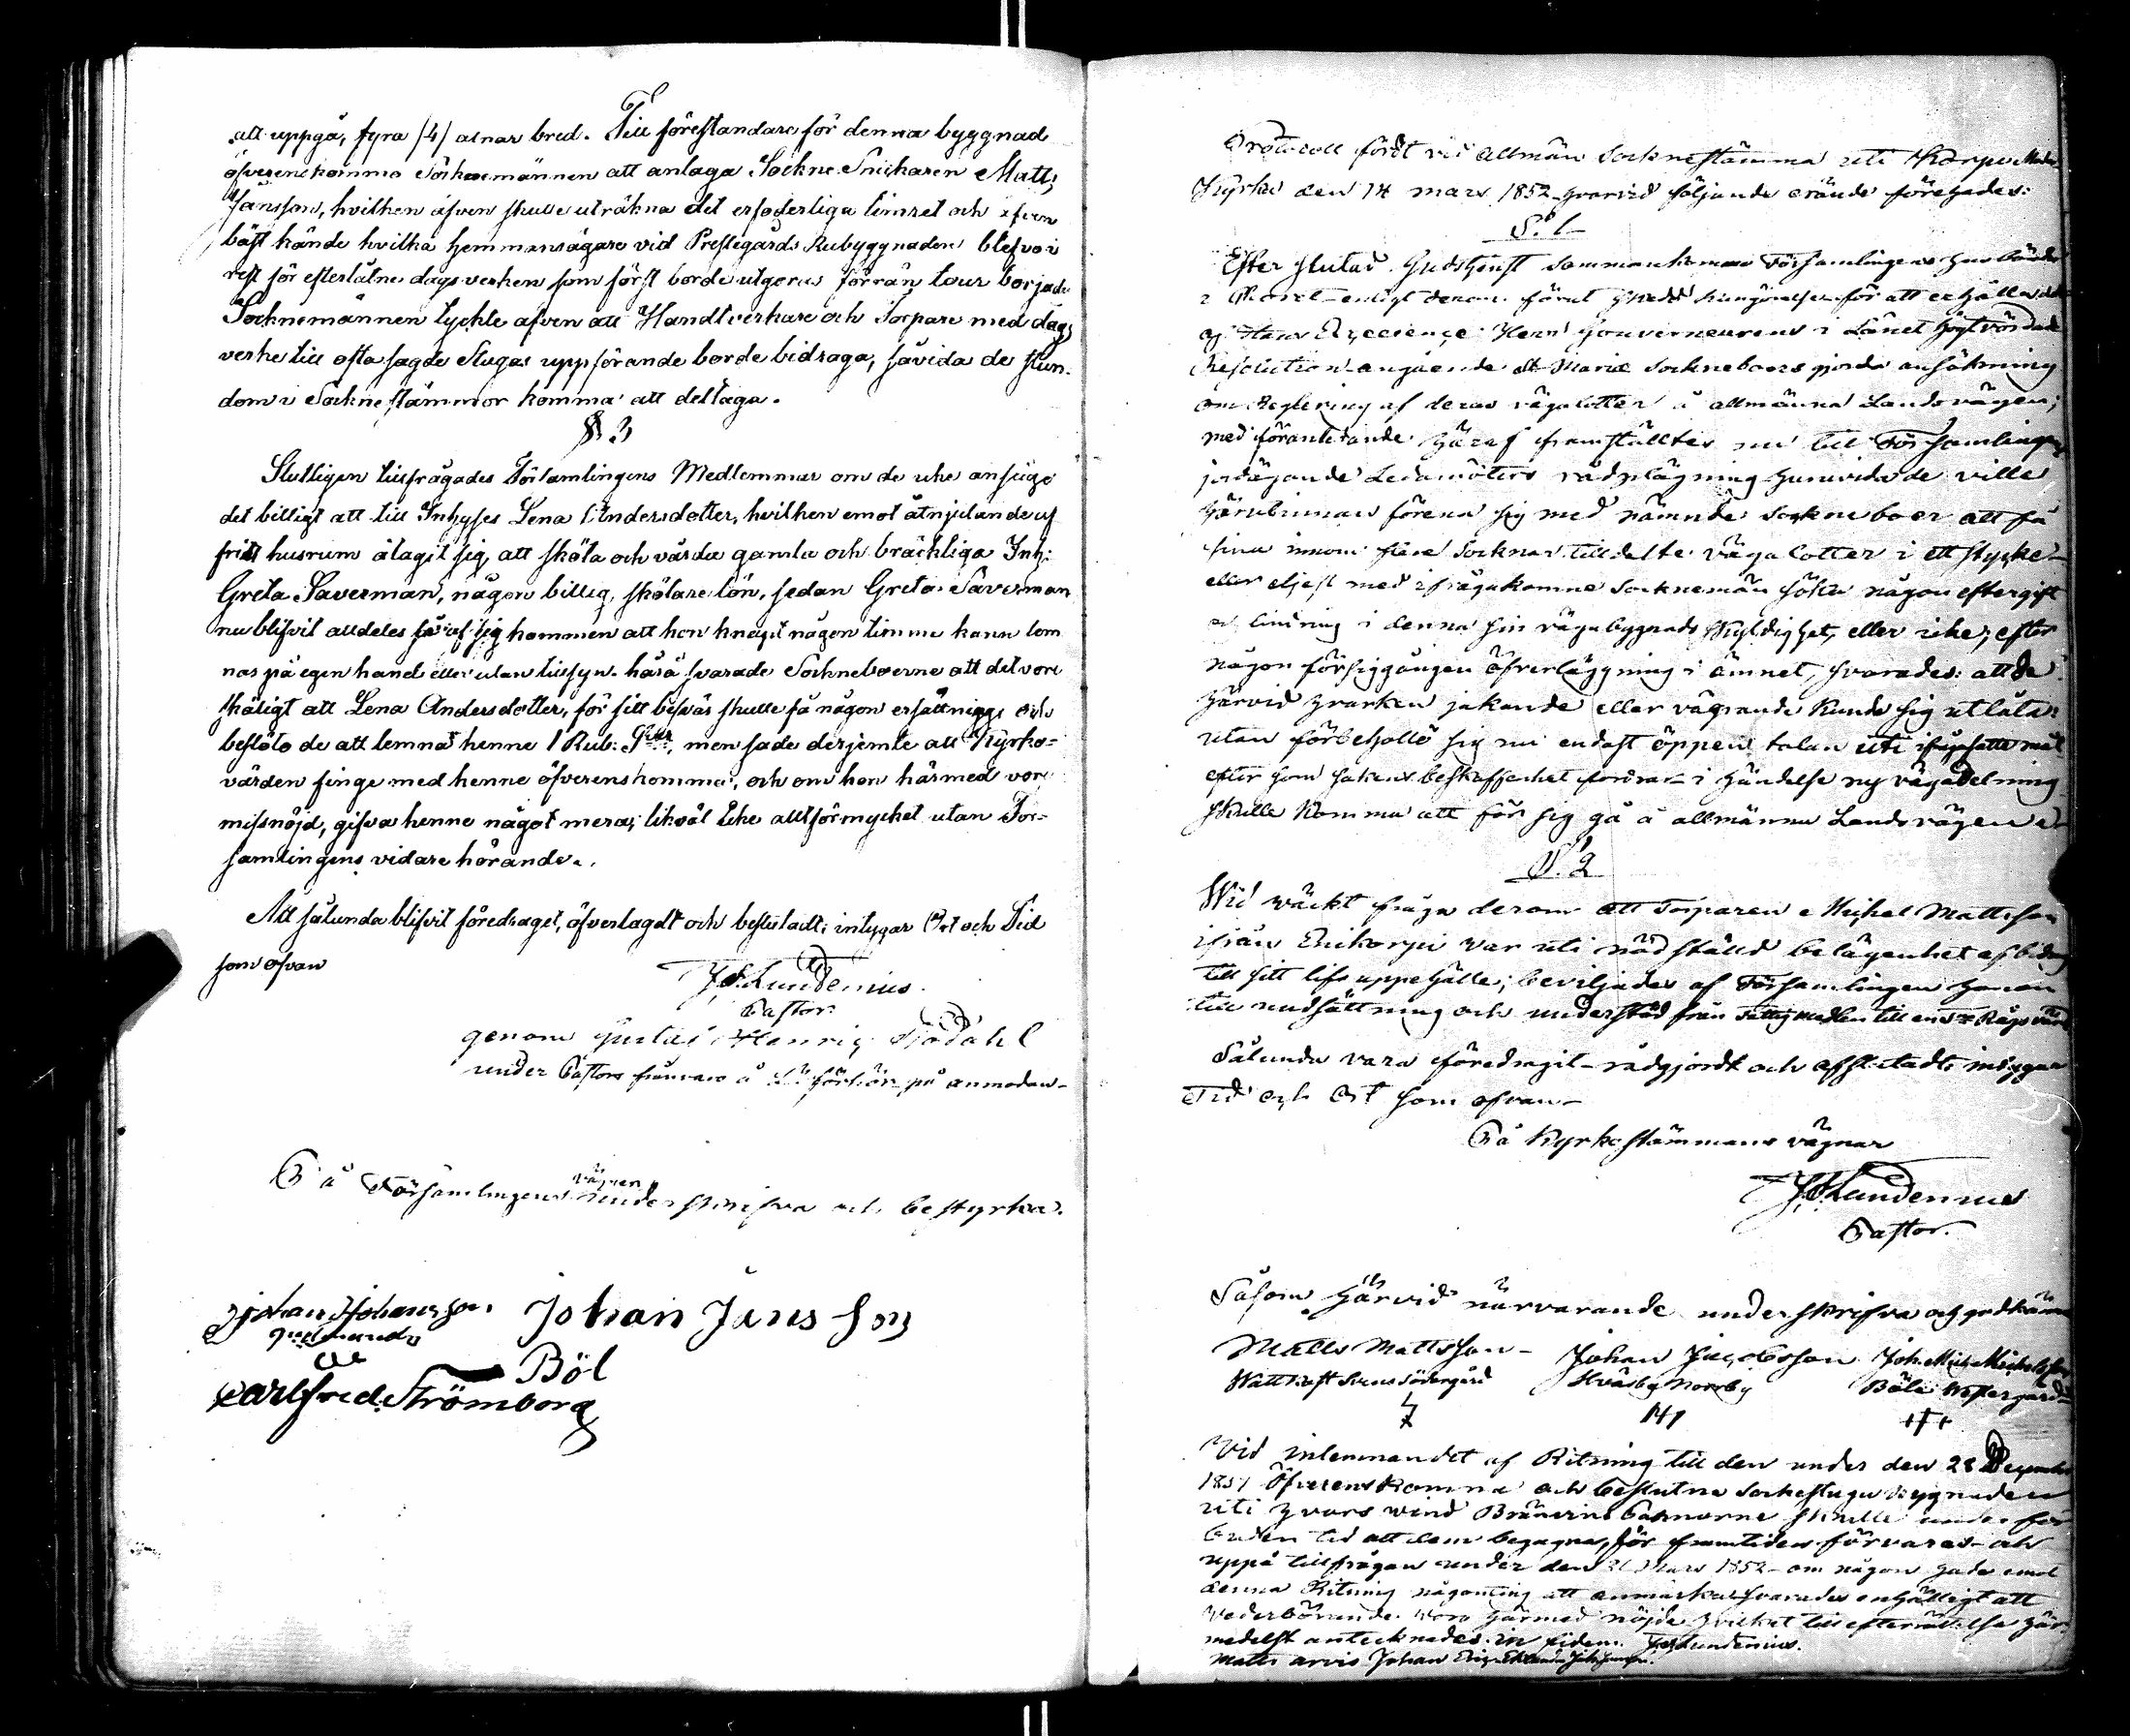 att uppgå, fyra /4/ alnar bred. Till föreståndare för denna byggnad
öfverenskommo Sockenmännen att antaga Sockne Snickaren Matts
Jansson, hvilken äfven skulle uträkna det erfoderliga timret och äfven
bäst kände hvilka hemmansägare vid Prestegårds Rubyggnaden blefvo i
rest för efterlåtne dagsverken som först borde utgöras förrän tour började
Socknemännen tyckte äfven att Handtverkare och Torpare med dags
verke till ofta sagde Stugas uppförande borde bidraga, såvida de stun-
dom i Sockne stämmor komma att deltaga.
§ 3
Slutligen tillfrågades Församlingens Medlemmar om de icke ansågo
det billigt att till Inhyses Lena Andersdotter, hvilken emot åtnjutande af
fritt husrum åtagit sig att sköta och vårda gamla och bräckliga Inh:
Greta Saverman, någon billig skötarelön, sedan Greta Saverman
nu blifvit alldeles så af sig kommen att hon knapt någon timme kann lem
nas på egen hand eller utan tillsyn. härå svarade Sockneboerne att det vore
skäligt att Lena Andersdotter, för sitt besvär skulle få någon ersättning och
beslöto de att lemna henne 1 Rub: Silfver, men sade derjemte att Kyrko-
värden finge med henne öfverenskomma, och om hon härmed vore
missnöjd, gifva henne något mera, likväl icke allt förmycket utan För-
samlingens vidare hörande.
Att sålunda blifvit föredraget, öfverlagdt och beslutadt; intygar Ort och Tid
som ofvan
Lundenius.
Pastor.
genom Gustaf Henric Sjödahl
under Pastors frånvaro å förhör på anmodan
På Församlingens vägnar underskrifva och bestyrka.
Johan Johansson Johan Jansson
Gudmunds Böl
Carl Fred. Strömborg
Protocoll fördt vid allmän Socknestämma uti Korpo
Kyrka den 14 mars 1852 hvarvid följande ärende förehades:
§. 1
Efter slutad Gudstjenst sammankommo Församlingens husbönder
enligt derom förut skedd kungörelse för att erhålla del
af Hans Excellence Herr Gouverneurens i Länet högtvördade
Resolution angående St Mariæ Socknebors gjorda ansökning
om Reglering af deras vägalotter å allmänna Landsvägen;
med föranledande häraf framställtes nu till Församlingens
jordägande Ledamöters rådplägning huruvida de ville
härutinnan förena sig med nämnde Sockneboer att få
sina innom flere Socknar tilldelte väga lotter i ett stycke
eller eljest med ifrågakomne Socknemän söka någon eftergift
och lindring i denna sin vägabyggnads skyldighet, eller icke; efter
någon försiggången öfverläggning i ämnet, svarades: att de
härvid hvarken jakande eller vägrande kunde sig utlåta:
utan förbehöllo sig nu endast öppen talan uti ifrågasatte mål
efter som sakens beskaffenhet fordrar i händelse ny vägadelning
skulle komma att för sig gå å allmänna Landsvägen
§. 2
Wid wäckt fråga derom att Torparen Michel Mattsson
ifrån Enikorpi var uti nödstäld belägenhet af bidrag
till sitt lifs uppehälle; beviljades af Församlingen honom
till undsättning och understöd från Fattigmedlen till en
Sålunda vara föredragit rådgjordt och afslutadt; intygar
Tid och Ort som ofvan
På Kyrkostämmans vägnar
Lundenius
Pastor.
Såsom härvid närvarande underskrifva och godkänna
Matts Mattsson Johan Jacobsson Joh. Mich. Michelsson
Södergård Norrby Böle Westergård
Vid inlemnandet af Ritning till den under den 28 December
1851 Öfverenskomna och beslutne Sockestugu bygnaden
uti hvars wind Bränvins Pannorne skulle under för
buden tid att dem begagna, för framtiden förvaras och
uppå tillfrågan under den 21 Mars 1852 om någon hade emot
denna Ritning någonting att anmärka svarades enhälligt att
Vederbörande voro härmed nöjde hvilket till efterrättelse här
medelst antecknades. in fidem. Lundenius.
Matts Johan